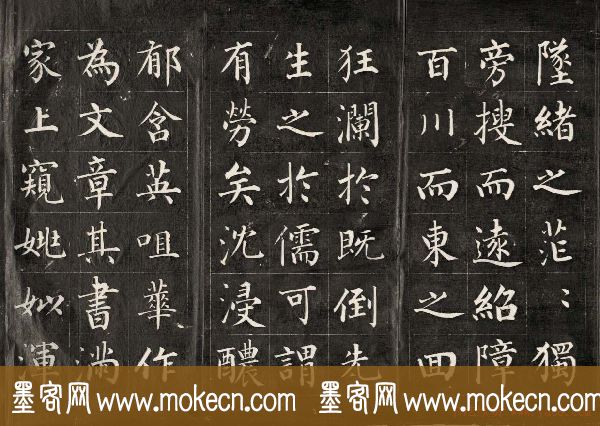 墜緒之茫〻獨
旁搜而遠紹障
百川而東之回
狂瀾於既倒先
生之於儒可謂
有勞矣沈浸醲
郁含英咀華作
為文章其書滿
家上窺姚姒渾
墨客网 www.mokecn.com 墨客网 www.mokecn.com